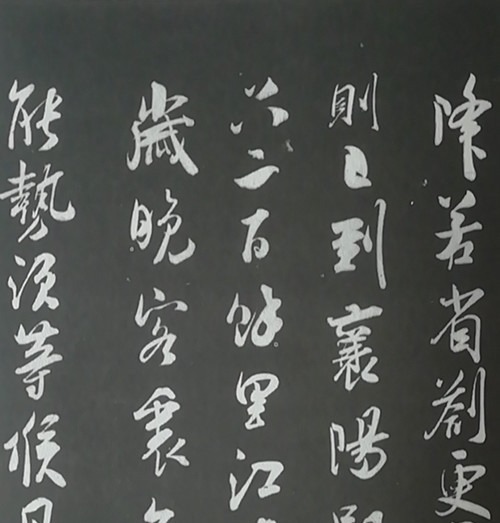 降若省劄更
則已到襄陽
六二百餘里江
歲晚客裏
能勢須等候